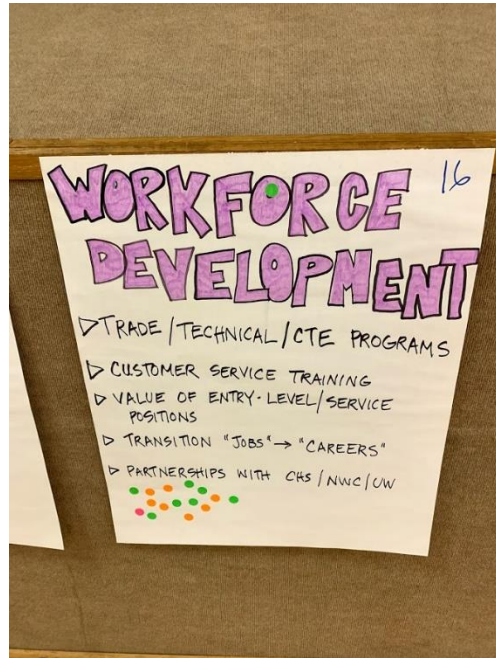 16
WORKFORCE
DEVELOPMENT
▷ TRADE/TECHNICAL/CTE PROGRAMS
▷ CUSTOMER SERVICE TRAINING
▷ VALUE OF ENTRY-LEVEL/SERVICE
POSITIONS
▷ TRANSITION "JOBS" → "CAREERS"
▷ PARTNERSHIPS WITH CHS/NWC/UW